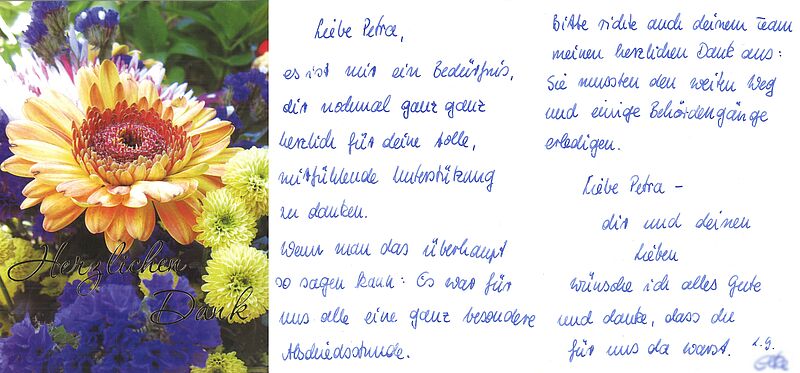 Herzlichen
Dank
Liebe Petra,
es ist mir ein Bedürfnis,
dir nochmal ganz ganz
herzlich für deine tolle,
mitfühlende Unterstützung
zu danken.
Wenn man das überhaupt
so sagen kann: Es war für
uns alle eine ganz besondere
Abschiedsstunde.
Bitte richte auch deinem Team
meinen herzlichen Dank aus:
Sie mussten den weiten Weg
und einige Behördengänge
erledigen.
Liebe Petra –
dir und deinen
Lieben
wünsche ich alles Gute
und danke, dass du
für uns da warst. L.G.